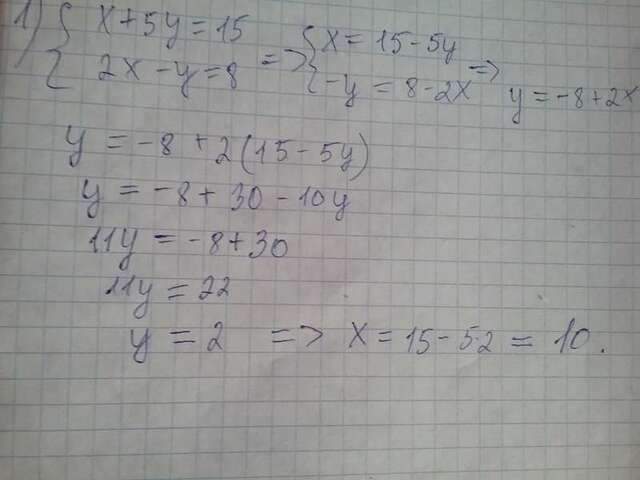 1) { x+5y=15 => { x = 15-5y
{ 2x-y=8 { -y = 8-2x => y = -8+2x
y = -8 + 2(15-5y)
y = -8 + 30 - 10y
11y = -8+30
11y = 22
y = 2 => x = 15-5·2 = 10.